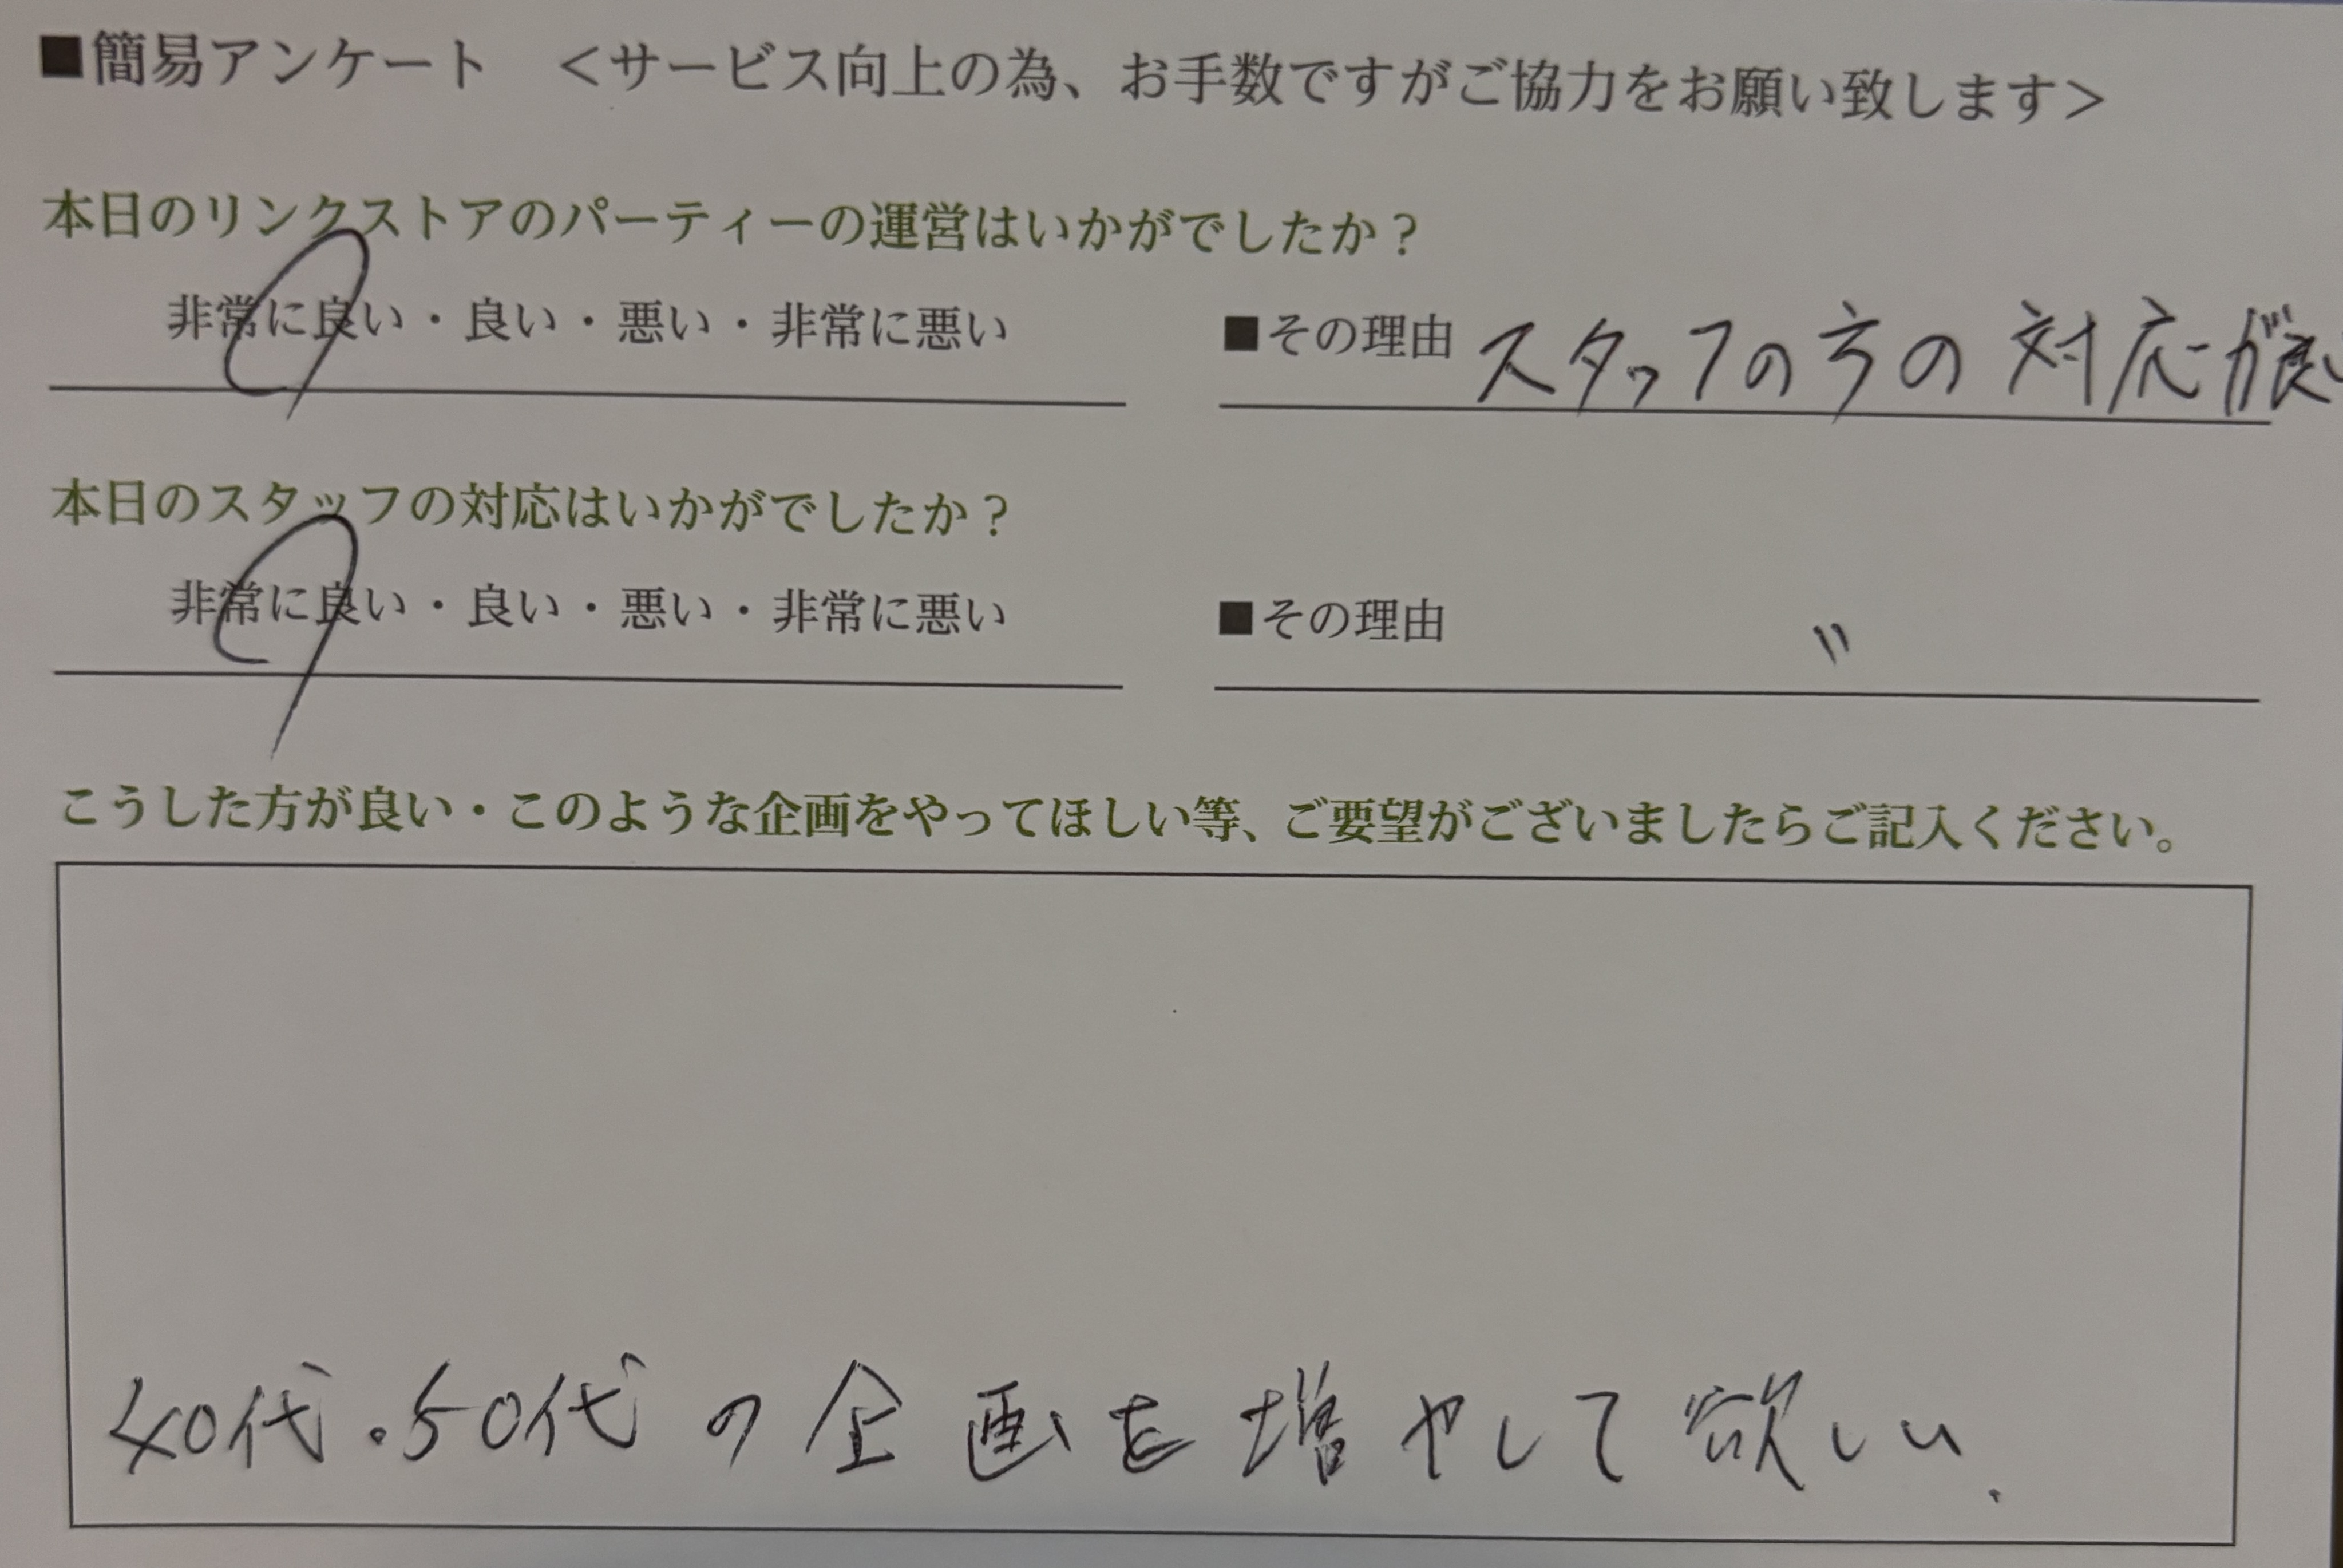 ■簡易アンケート <サービス向上の為、お手数ですがご協力をお願い致します>
本日のリンクストアのパーティーの運営はいかがでしたか？
非常に良い・良い・悪い・非常に悪い ■その理由 スタッフの方の対応が良い
本日のスタッフの対応はいかがでしたか？
非常に良い・良い・悪い・非常に悪い ■その理由 〃
こうした方が良い・このような企画をやってほしい等、ご要望がございましたらご記入ください。
40代・50代の企画を増やして欲しい。